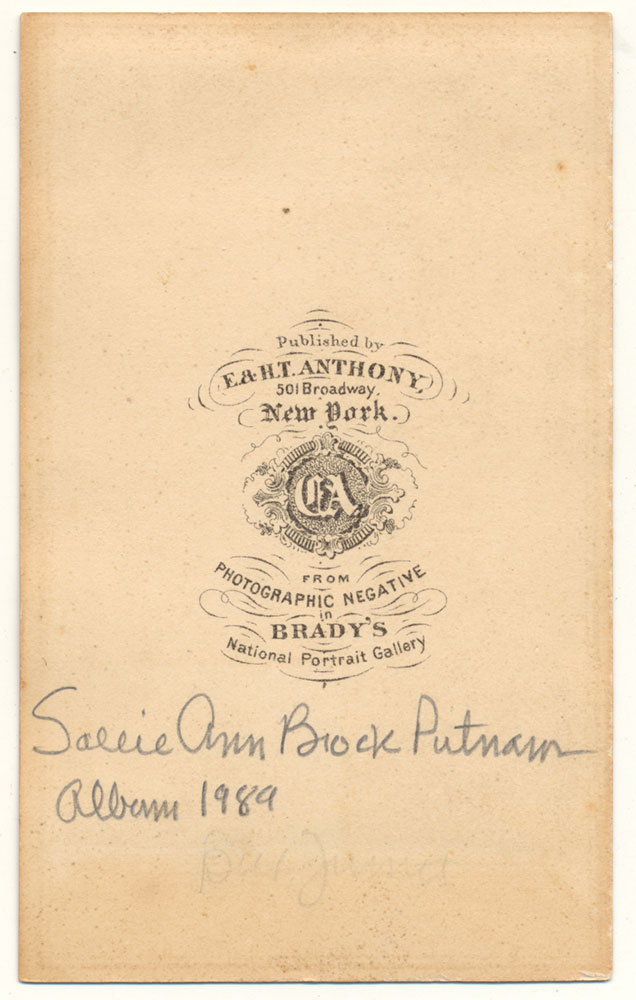 Published by
E. & H.T. ANTHONY,
501 Broadway.
New York.
FROM
PHOTOGRAPHIC NEGATIVE
in
BRADY'S
National Portrait Gallery
Sallie Ann Brock Putnam
Album 1989